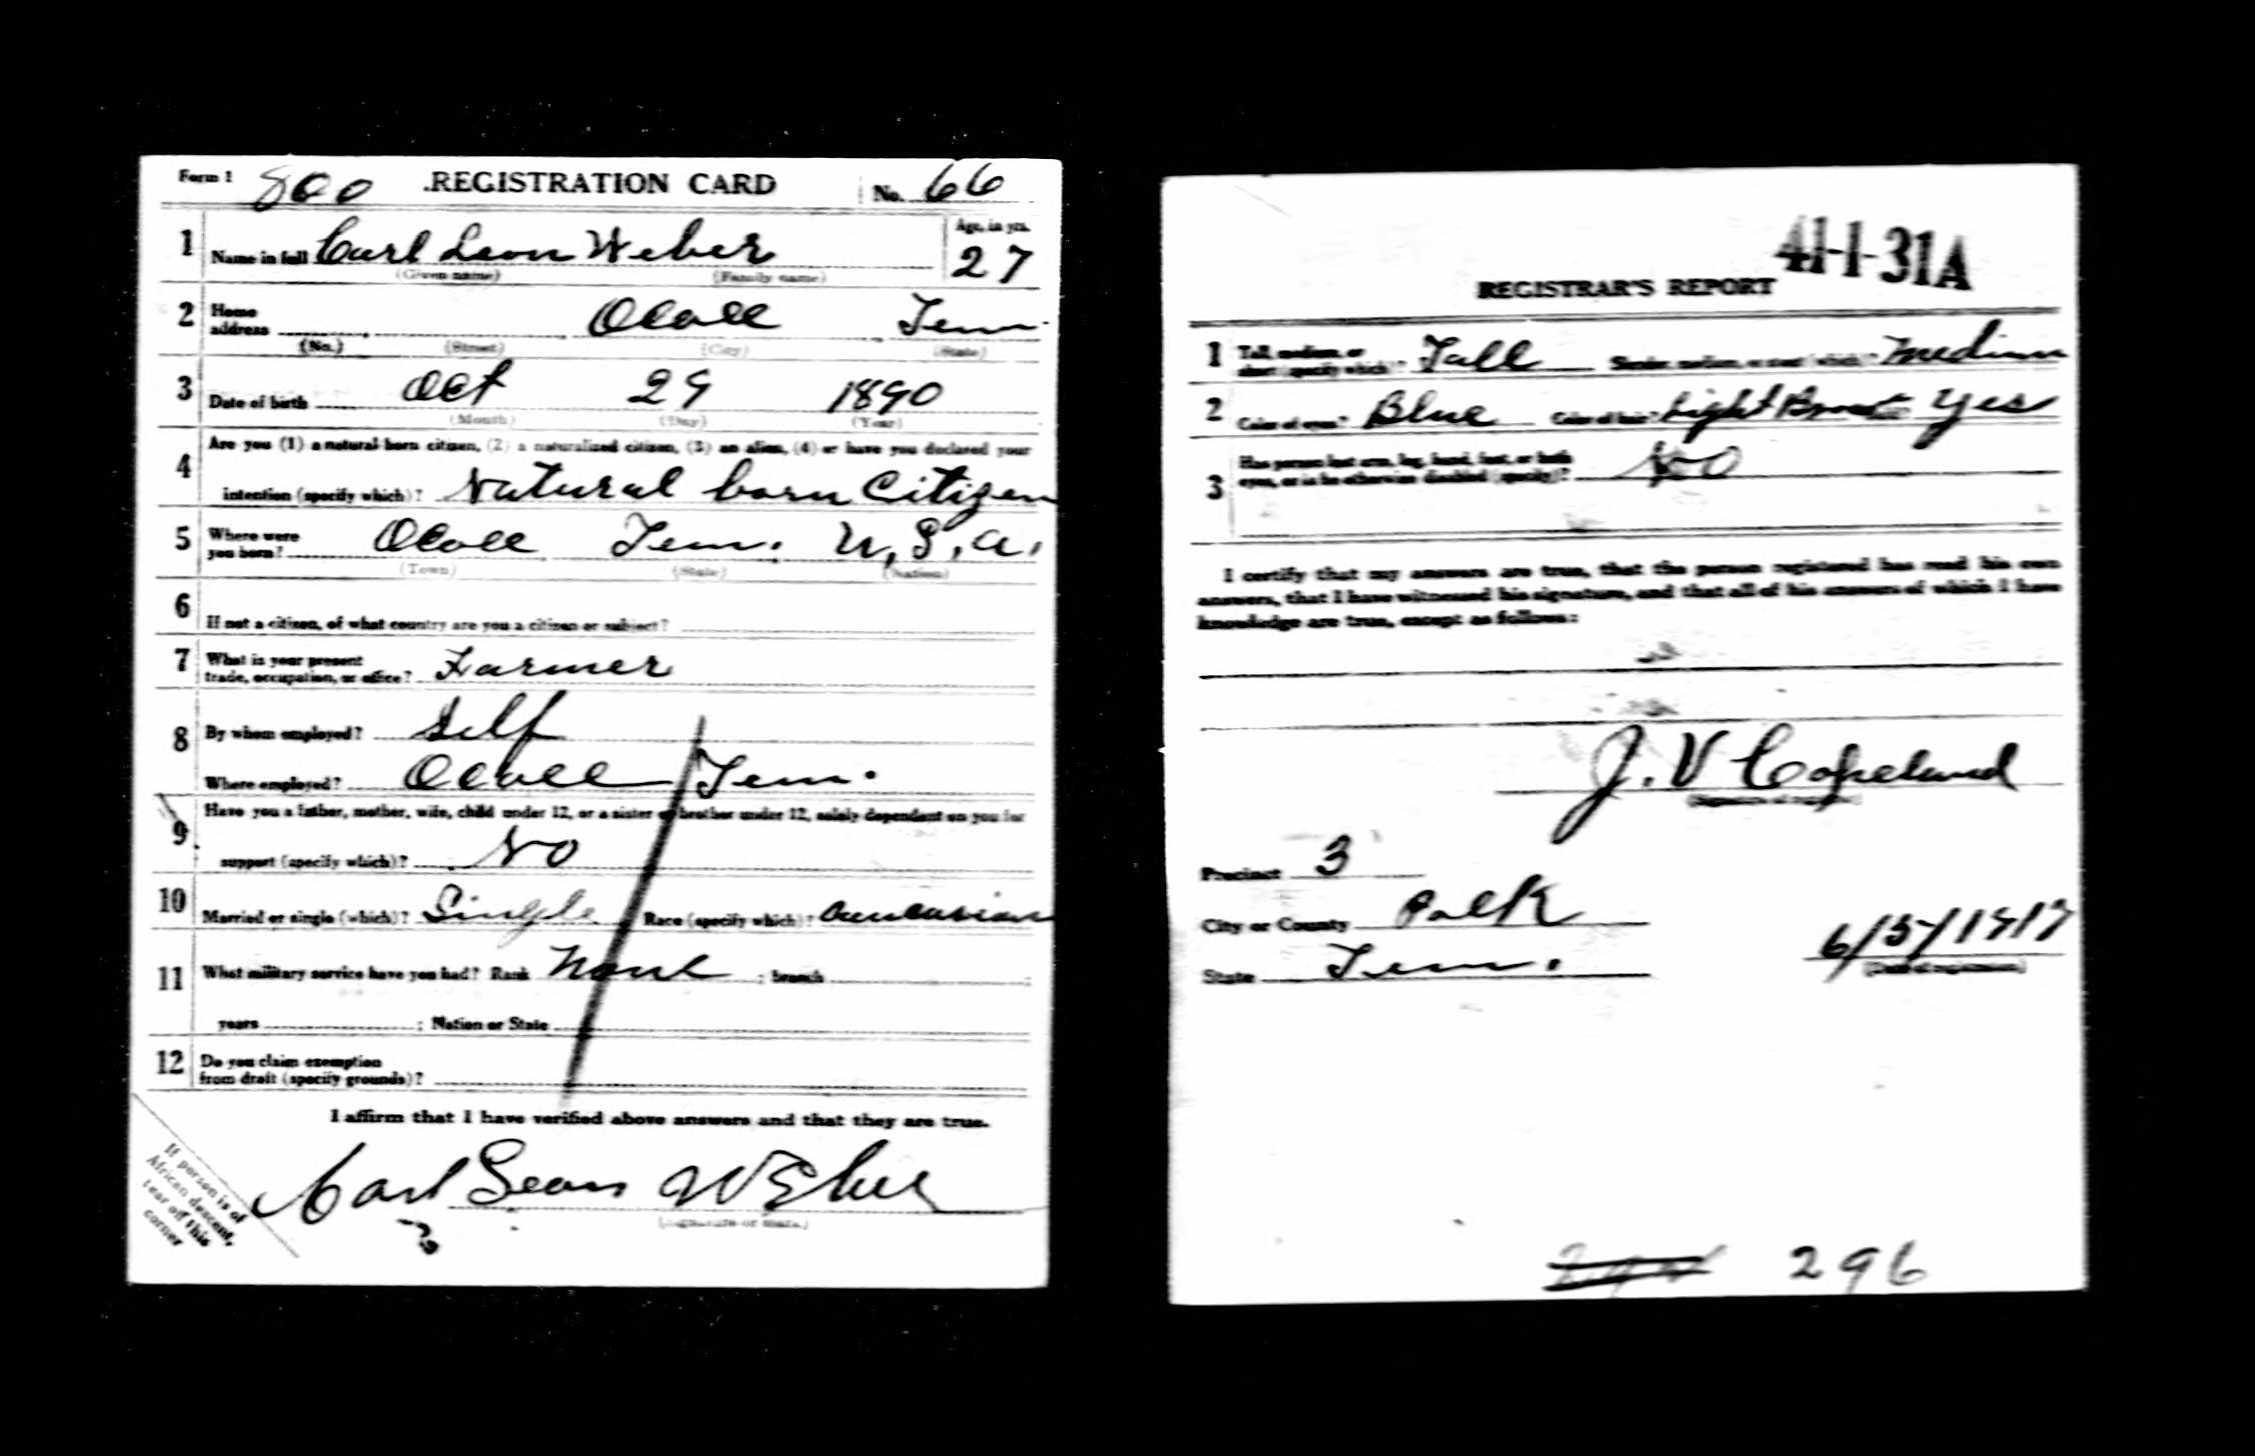 Form 1 800 REGISTRATION CARD No. 66
1 Name in full Carl Leon Weber Age, in yrs. 27
(Given name) (Family name)
2 Home address Ocoee Tenn.
(No.) (Street) (City) (State)
3 Date of birth Oct 29 1890
(Month) (Day) (Year)
4 Are you (1) a natural-born citizen, (2) a naturalized citizen, (3) an alien, (4) or have you declared your
intention (specify which)? Natural born Citizen
5 Where were you born? Ocoee Tenn. U.S.A.
(Town) (State) (Nation)
6 If not a citizen, of what country are you a citizen or subject?
7 What is your present trade, occupation, or office? Farmer
8 By whom employed? Self
Where employed? Ocoee Tenn.
9 Have you a father, mother, wife, child under 12, or a sister or brother under 12, solely dependent on you for
support (specify which)? No
10 Married or single (which)? Single Race (specify which)? Caucasian
11 What military service have you had? Rank None ; branch ;
years ; Nation or State
12 Do you claim exemption from draft (specify grounds)?
I affirm that I have verified above answers and that they are true.
Carl Leon Weber
(Signature or mark.)
If person is of
African descent,
tear off this
corner
41-1-31A
REGISTRAR'S REPORT
1 Tall, medium, or short (specify which)? Tall Slender, medium, or stout (which)? Medium
2 Color of eyes? Blue Color of hair? Light Brown Yes
3 Has person lost arm, leg, hand, foot, or both eyes, or is he otherwise disabled (specify)? No
I certify that my answers are true, that the person registered has read his own
answers, that I have witnessed his signature, and that all of his answers of which I have
knowledge are true, except as follows:
J. V Copeland
(Signature of registrar)
Precinct 3
City or County Polk
State Tenn.
6/5/1917
(Date of registration)
296